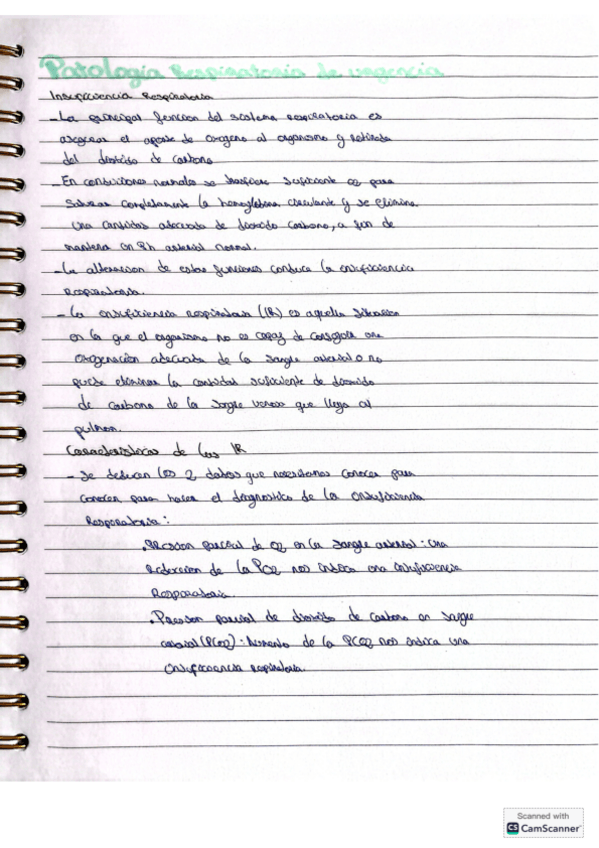 Patología Respiratoria de urgencia
Insuficiencia Respiratoria
- La principal funcion del sistema respiratorio es
asegurar el aporte de oxigeno al organismo y retirada
del dioxido de carbono
- En condiciones normales se transfiere suficiente O2 para
saturar completamente la hemoglobina circulante y se elimina
una cantidad adecuada de dioxido carbono, a fin de
mantener un Ph arterial normal.
- La alteracion de estas funciones conduce la insuficiencia
respiratoria.
- La insuficiencia respiratoria (IR) es aquella situacion
en la que el organismo no es capaz de conseguir una
oxigenación adecuada de la sangre arterial o no
puede eliminar la cantidad suficiente de dioxido
de carbono de la sangre venosa que llega al
pulmon.
Caracteristicas de las IR
- Se deducen los 2 datos que necesitamos conocer para
conocer para hacer el diagnostico de la insuficiencia
Respiratoria:
• Presion parcial de O2 en la sangre arterial: una
reducción de la PO2 nos indica una insuficiencia
Respiratoria.
• Presion parcial de dioxido de carbono en sangre
arterial (PCO2): Aumento de la PCO2 nos indica una
insuficiencia respiratoria.
Scanned with
CS CamScanner